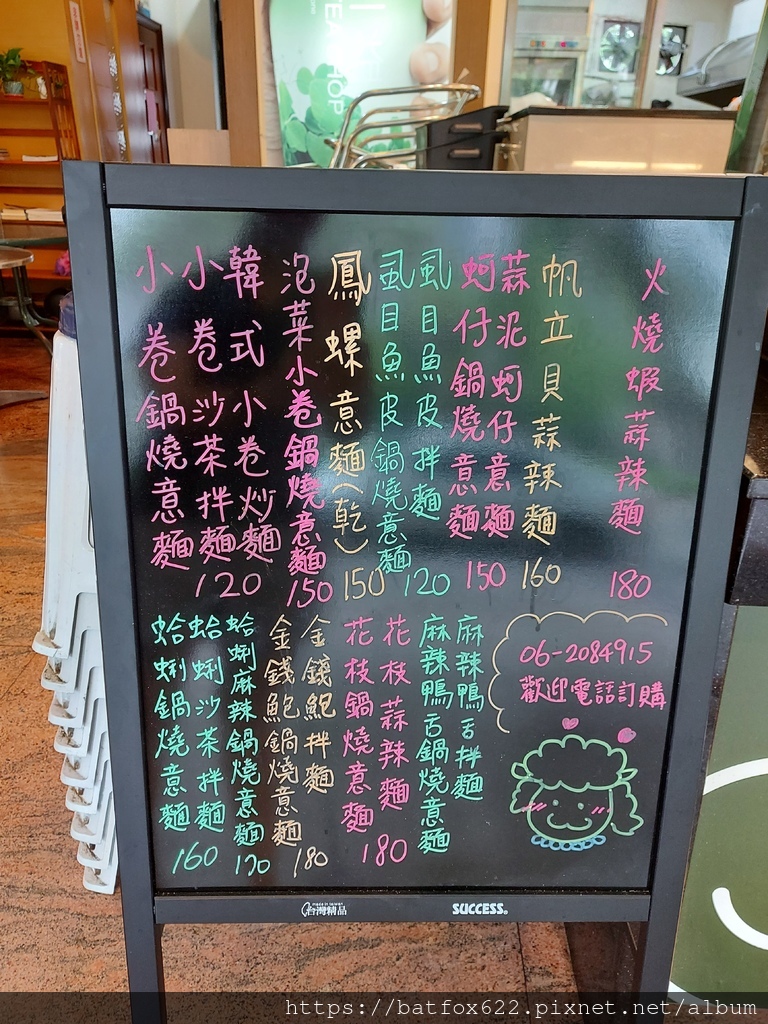 火燒蝦蒜辣麵
180
帆立貝蒜辣麵
160
蒜泥蚵仔意麵
蚵仔鍋燒意麵
150
虱目魚皮拌麵
虱目魚皮鍋燒意麵
120
鳳螺意麵(乾)
150
泡菜小卷鍋燒意麵
150
韓式小卷炒麵
小卷沙茶拌麵
小卷鍋燒意麵
120
06-2084915
歡迎電話訂購
麻辣鴨舌拌麵
麻辣鴨舌鍋燒意麵
花枝蒜辣麵
花枝鍋燒意麵
180
金錢鮑拌麵
金錢鮑鍋燒意麵
180
蛤蜊麻辣鍋燒意麵
170
蛤蜊沙茶拌麵
蛤蜊鍋燒意麵
160
made in taiwan
台灣精品
SUCCESS®
https://batfox622.pixnet.net/album